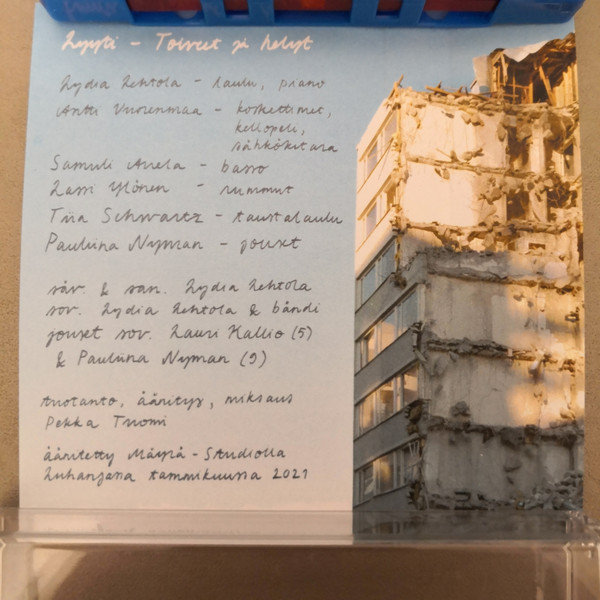 Lyyti - Toiveet ja helyt
Lydia Lehtola - laulu, piano
Antti Vuorenmaa - koskettimet,
kellopeli,
sähkökitara
Samuli Anela - basso
Lassi Ylönen - rummut
Tiia Schwartz - taustalaulu
Pauliina Nyman - jouset
säv. & san. Lydia Lehtola
sov. Lydia Lehtola & bändi
jouset sov. Lauri Kallio (5)
& Pauliina Nyman (9)
tuotanto, äänitys, miksaus
Pekka Tuomi
äänitetty Mäyrä-Studiolla
Luhangassa tammikuussa 2021